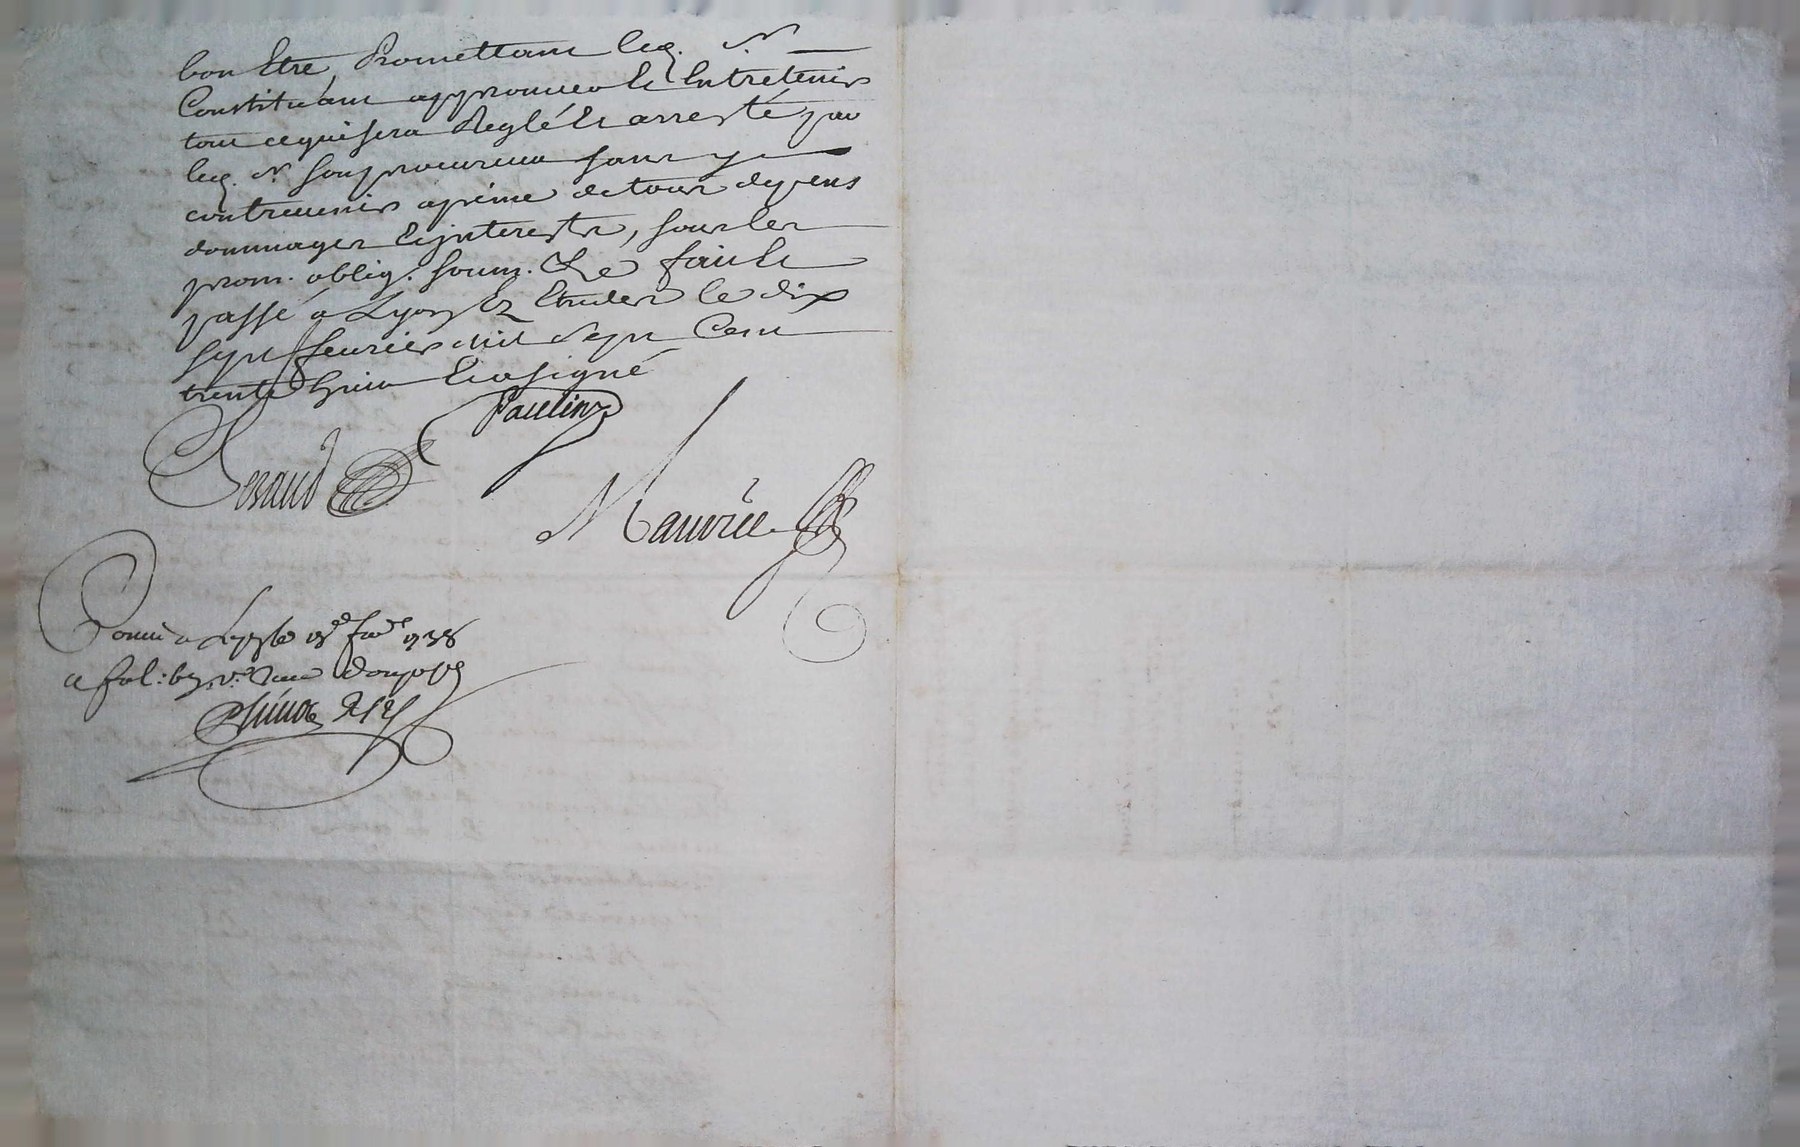 bon Etre, Promettant led. Sr
Constituant approuver et Entretenir
tout cequi sera Reglé Et arresté par
led. Sr. son procureur sans y
contrevenir apeine detous depens
dommages Et jnterests, sous les
prom. oblig. soum. &c fait Et
passé à Lyon Ez Etudes le dix
sept feurier mil Sept Cent
trente huit Et a signé
Paulin
Geraud
Mauvice
Conné a Lyon le 18e fevr 1738
a fol: v.° Recu douze s